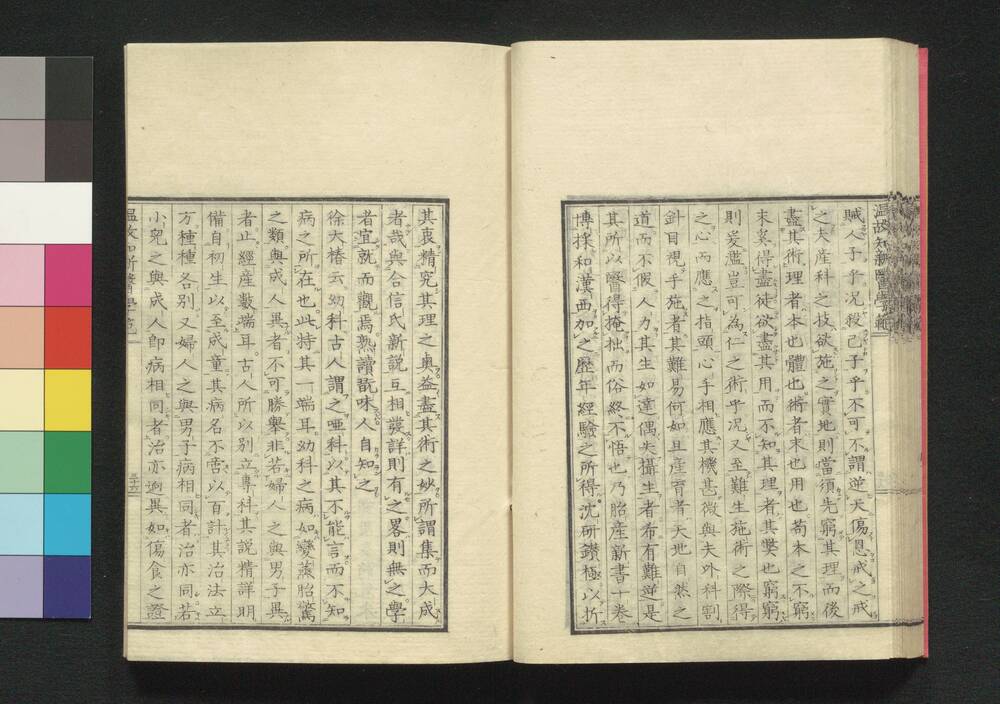 温故知新醫學範
賊人子乎况殺己子乎不可不謂逆天傷恩戒之戒
之夫産科之技欲施之實地則當須先窮其理而後
盡其術理者本也體也術者末也用也苟本之不窮
末奚得盡徒欲盡其用而不知其理者其獘也窮窮
則爰濫豈可為仁之術乎况又至難生施術之際得
之心而應之指頭心手相應其機甚微與夫外科割
針目視手施者其難易何如且産育者天地自然之
道而不假人力其生如達偶失攝生者希有難逆是
其所以醫得掩拙而俗終不悟也乃胎産新書十巻
博採和漢西加之歴年經驗之所得沈研鑚極以折
其衷精究其理之奥益盡其術之妙所謂集而大成
者哉與合信氏新説互相發詳則有之畧則無之學
者宜就而觀焉熟讀翫味人自知之
徐大椿云幼科古人謂之啞科以其不能言而不知
病之所在也此特其一端耳幼科之病如變蒸胎驚
之類與成人異者不可勝舉非若婦人之與男子異
者止經産數端耳古人所以別立專科其説精詳明
備自初生以至成童其病名不啻以百計其治法立
方種種各別又婦人之與男子病相同者治亦同若
小兒之與成人即病相同者治亦迥異如傷食之證